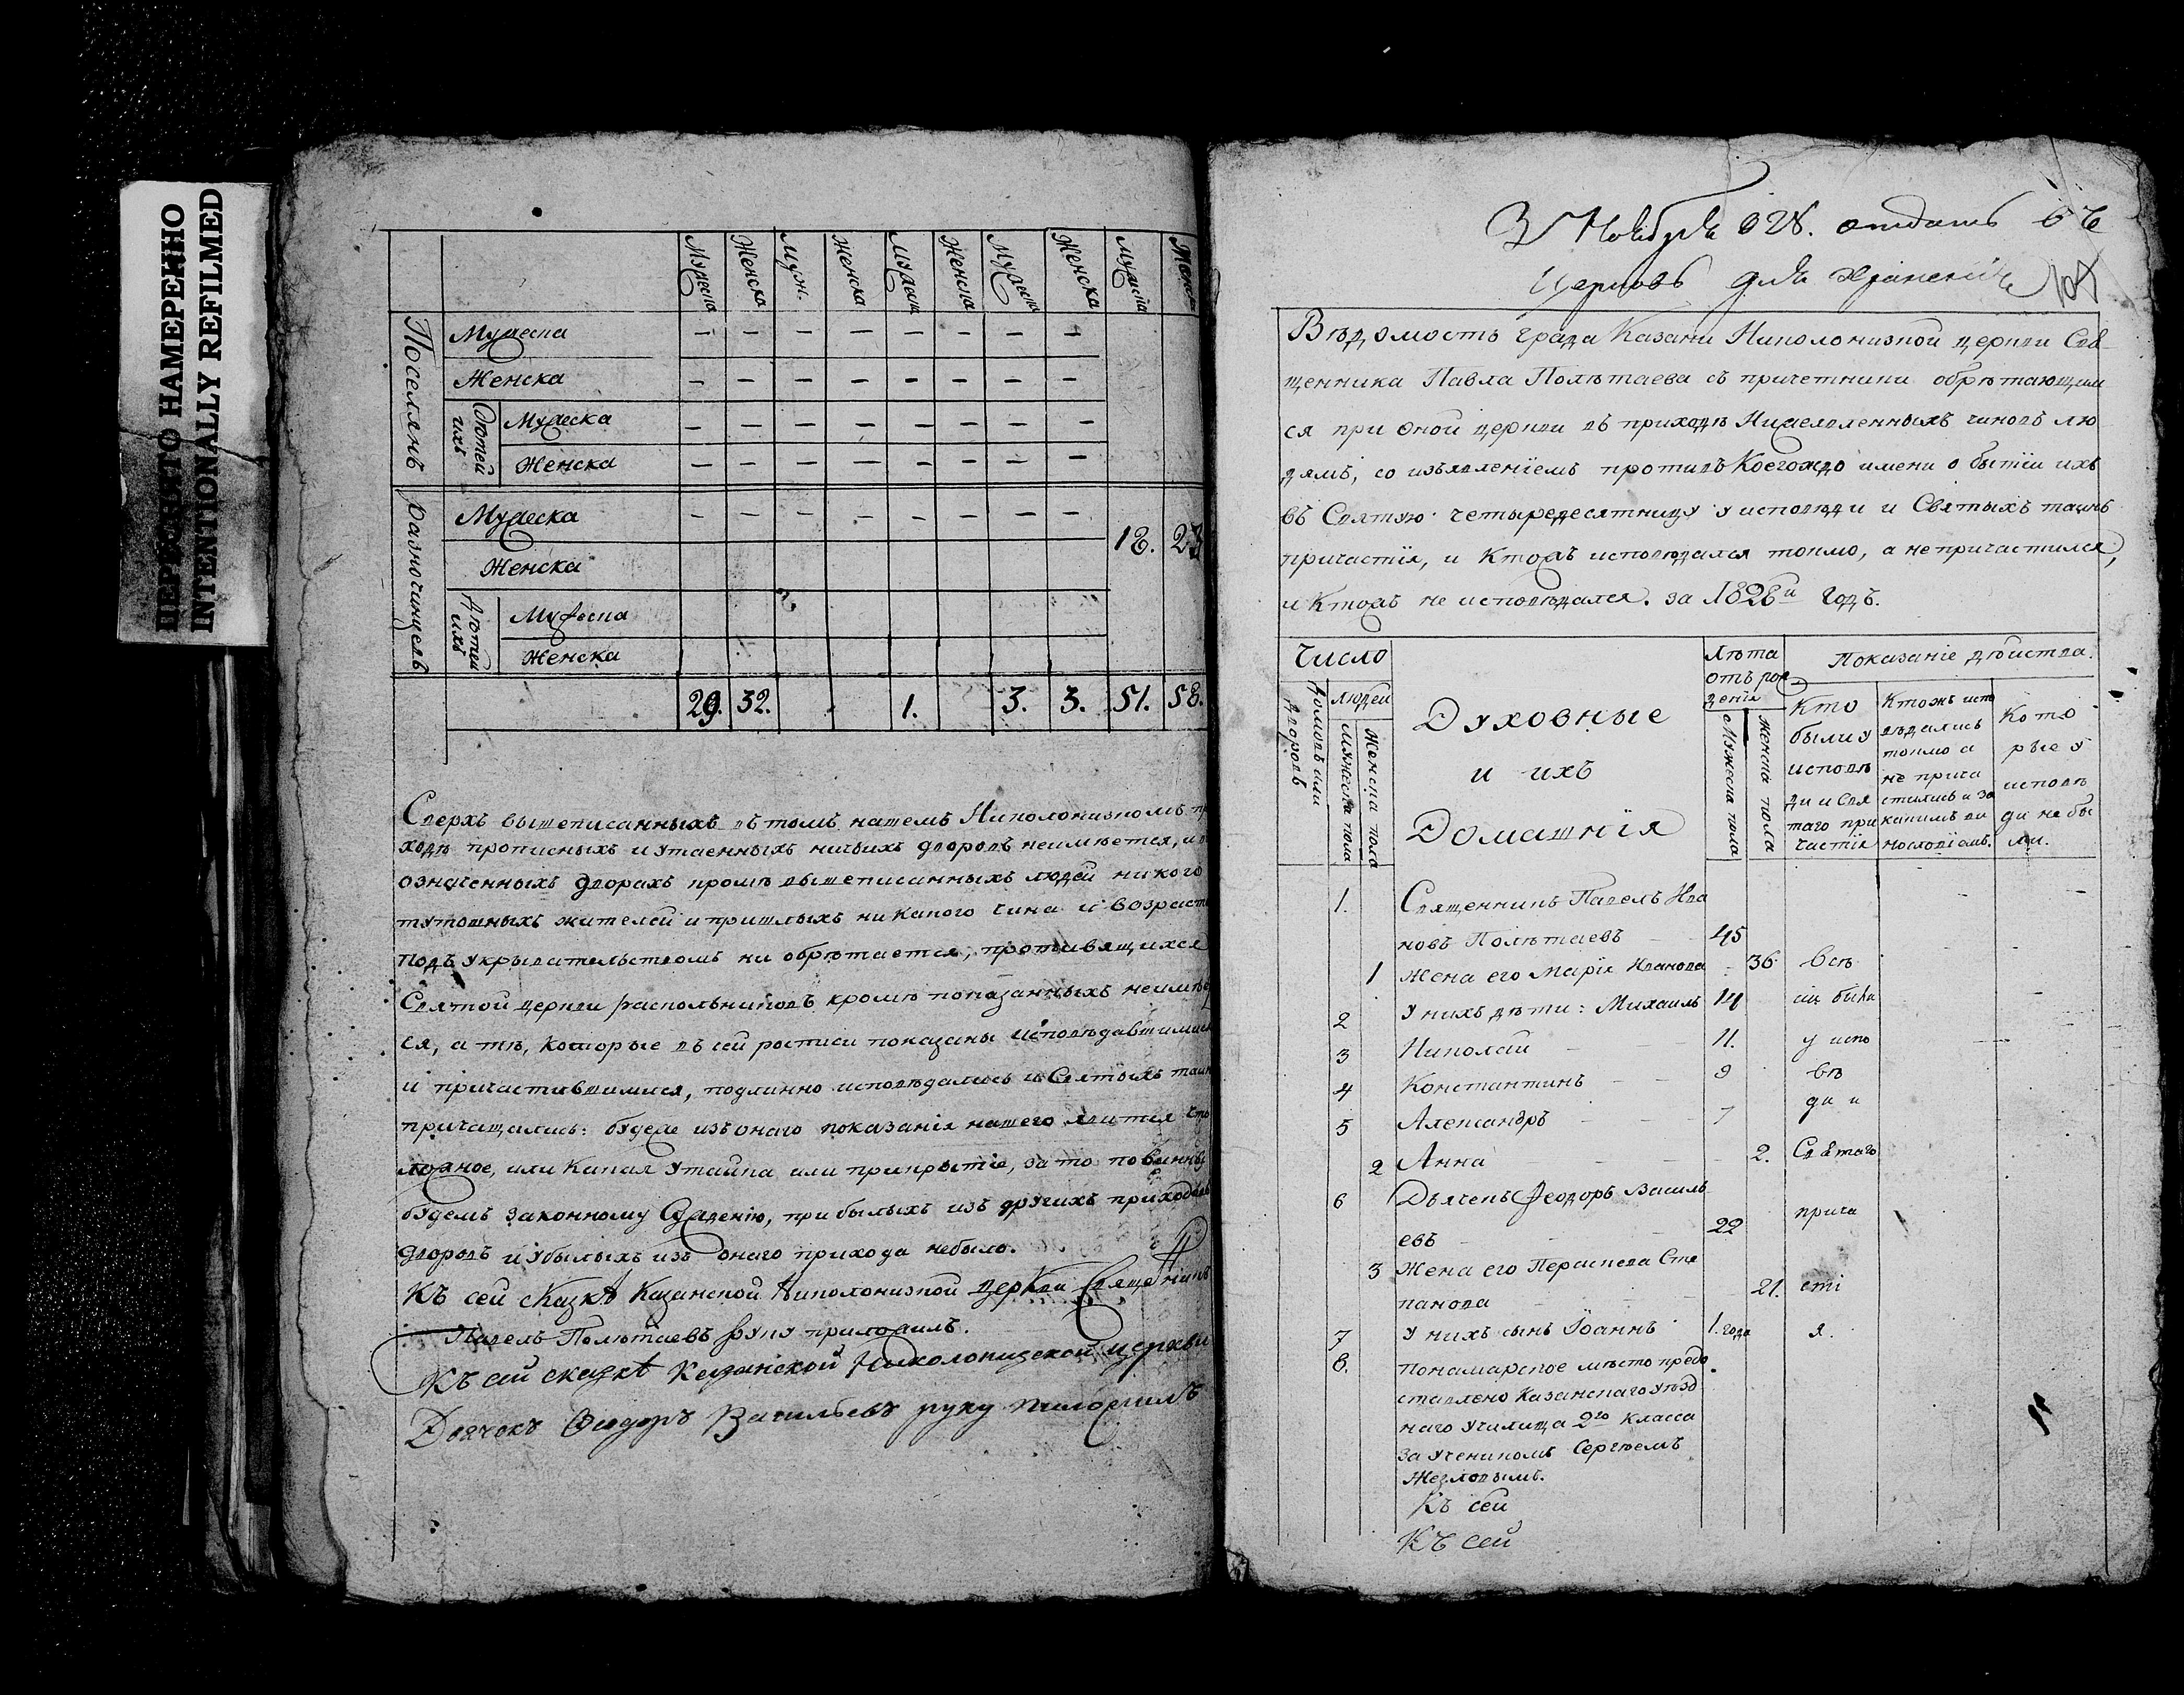 ПЕРЕСНЯТО НАМЕРЕННО
INTENTIONALLY REFILMED
Мужеска Женска Муж. Женска Мужеска Женска Мужеска Женска Мужеска
Поселянъ
Мужеска — — — — — — — —
Женска — — — — — — — —
Дѣтей ихъ
Мужеска — — — — — — — —
Женска — — — — — — — —
Разночинцевъ
Мужеска — — — — — — — —
18. 23
Женска
Дѣтей ихъ
Мужеска
Женска
29. 32. 1. 3. 3. 51. 58.
Сверхъ вышеписанныхъ въ томъ нашемъ Николонизномъ
ходѣ прописныхъ и утаенныхъ ничьихъ дворовъ неимѣется, и
означенныхъ дворахъ кромѣ вышеписанныхъ людей никого
тутошныхъ жителей и пришлыхъ никакого чина и возраст
подъ укрывательствомъ не обрѣтается, противящихся
Святой церкви раскольниковъ кромѣ показанныхъ неимѣе
ся, а тѣ, которые въ сей росписи показаны исповѣдавшимис
и причастившимися, подлинно исповѣдались и Святыхъ таин
причащались: будеже изъ онаго показанія нашего явится что
ложное, или какая утайка или прикрытіе, за то повинны
будемъ законному сужденію, прибылыхъ изъ другихъ приходовъ
дворовъ и убылыхъ изъ онаго прихода небыло.
Къ сей сказкѣ Казанской Николонизной церкви Священникъ
Павелъ Полѣтаевъ руку приложилъ.
Къ сей сказкѣ Казанской Николонизской церкви
Дьячокъ Ѳеодоръ Васильевъ руку приложилъ
3 Ноября 828. отдать въ
Церковь для храненія
Вѣдомость града Казани Николонизной церкви Свя-
щенника Павла Полѣтаева съ причетники обрѣтающим
ся при оной церкви въ приходѣ Нижеявленныхъ чиновъ лю
дямъ, со изъявленіемъ противъ Коегождо имени о бытіи ихъ
въ Святую четыредесятницу у исповѣди и Святыхъ таинъ
причастія, и Ктожъ исповѣдался токмо, а не причастился,
и Ктожъ не исповѣдался. за 1828й годъ.
Число
Домовъ или дворовъ
людей
Мужеска пола
Женска пола
Духовные
и ихъ
Домашнія
Лѣта
отъ рож
денія
Мужеска пола
Женска пола
Показаніе действа.
Кто
были у
исповѣ
ди и Свя
таго при
частія
Ктожъ испо
вѣдались
токмо а
не прича
стились и за
какимъ ви
нословіемъ.
Кото
рые у
исповѣ
ди не бы
ли.
1. Священникъ Павелъ Ива
новъ Полѣтаевъ 45
1 Жена его Марія Иванова 36 Всѣ
2 У нихъ дѣти: Михаилъ 14
3 Николай 11. у испо
4 Константинъ 9 вѣ
5 Александръ 7 ди и
2 Анна 2. Святаго
6 Дьячекъ Ѳеодоръ Василь
евъ 22 прича
3 Жена его Пераскева Сте
панова 21. сті
7 У нихъ сынъ Іоаннъ 1. года я.
8. Пономарское мѣсто предо
ставлено Казанскаго уѣзд
наго училища 2го класса
за ученикомъ Сергѣемъ
Жезловымъ.
Къ сей
Къ сей